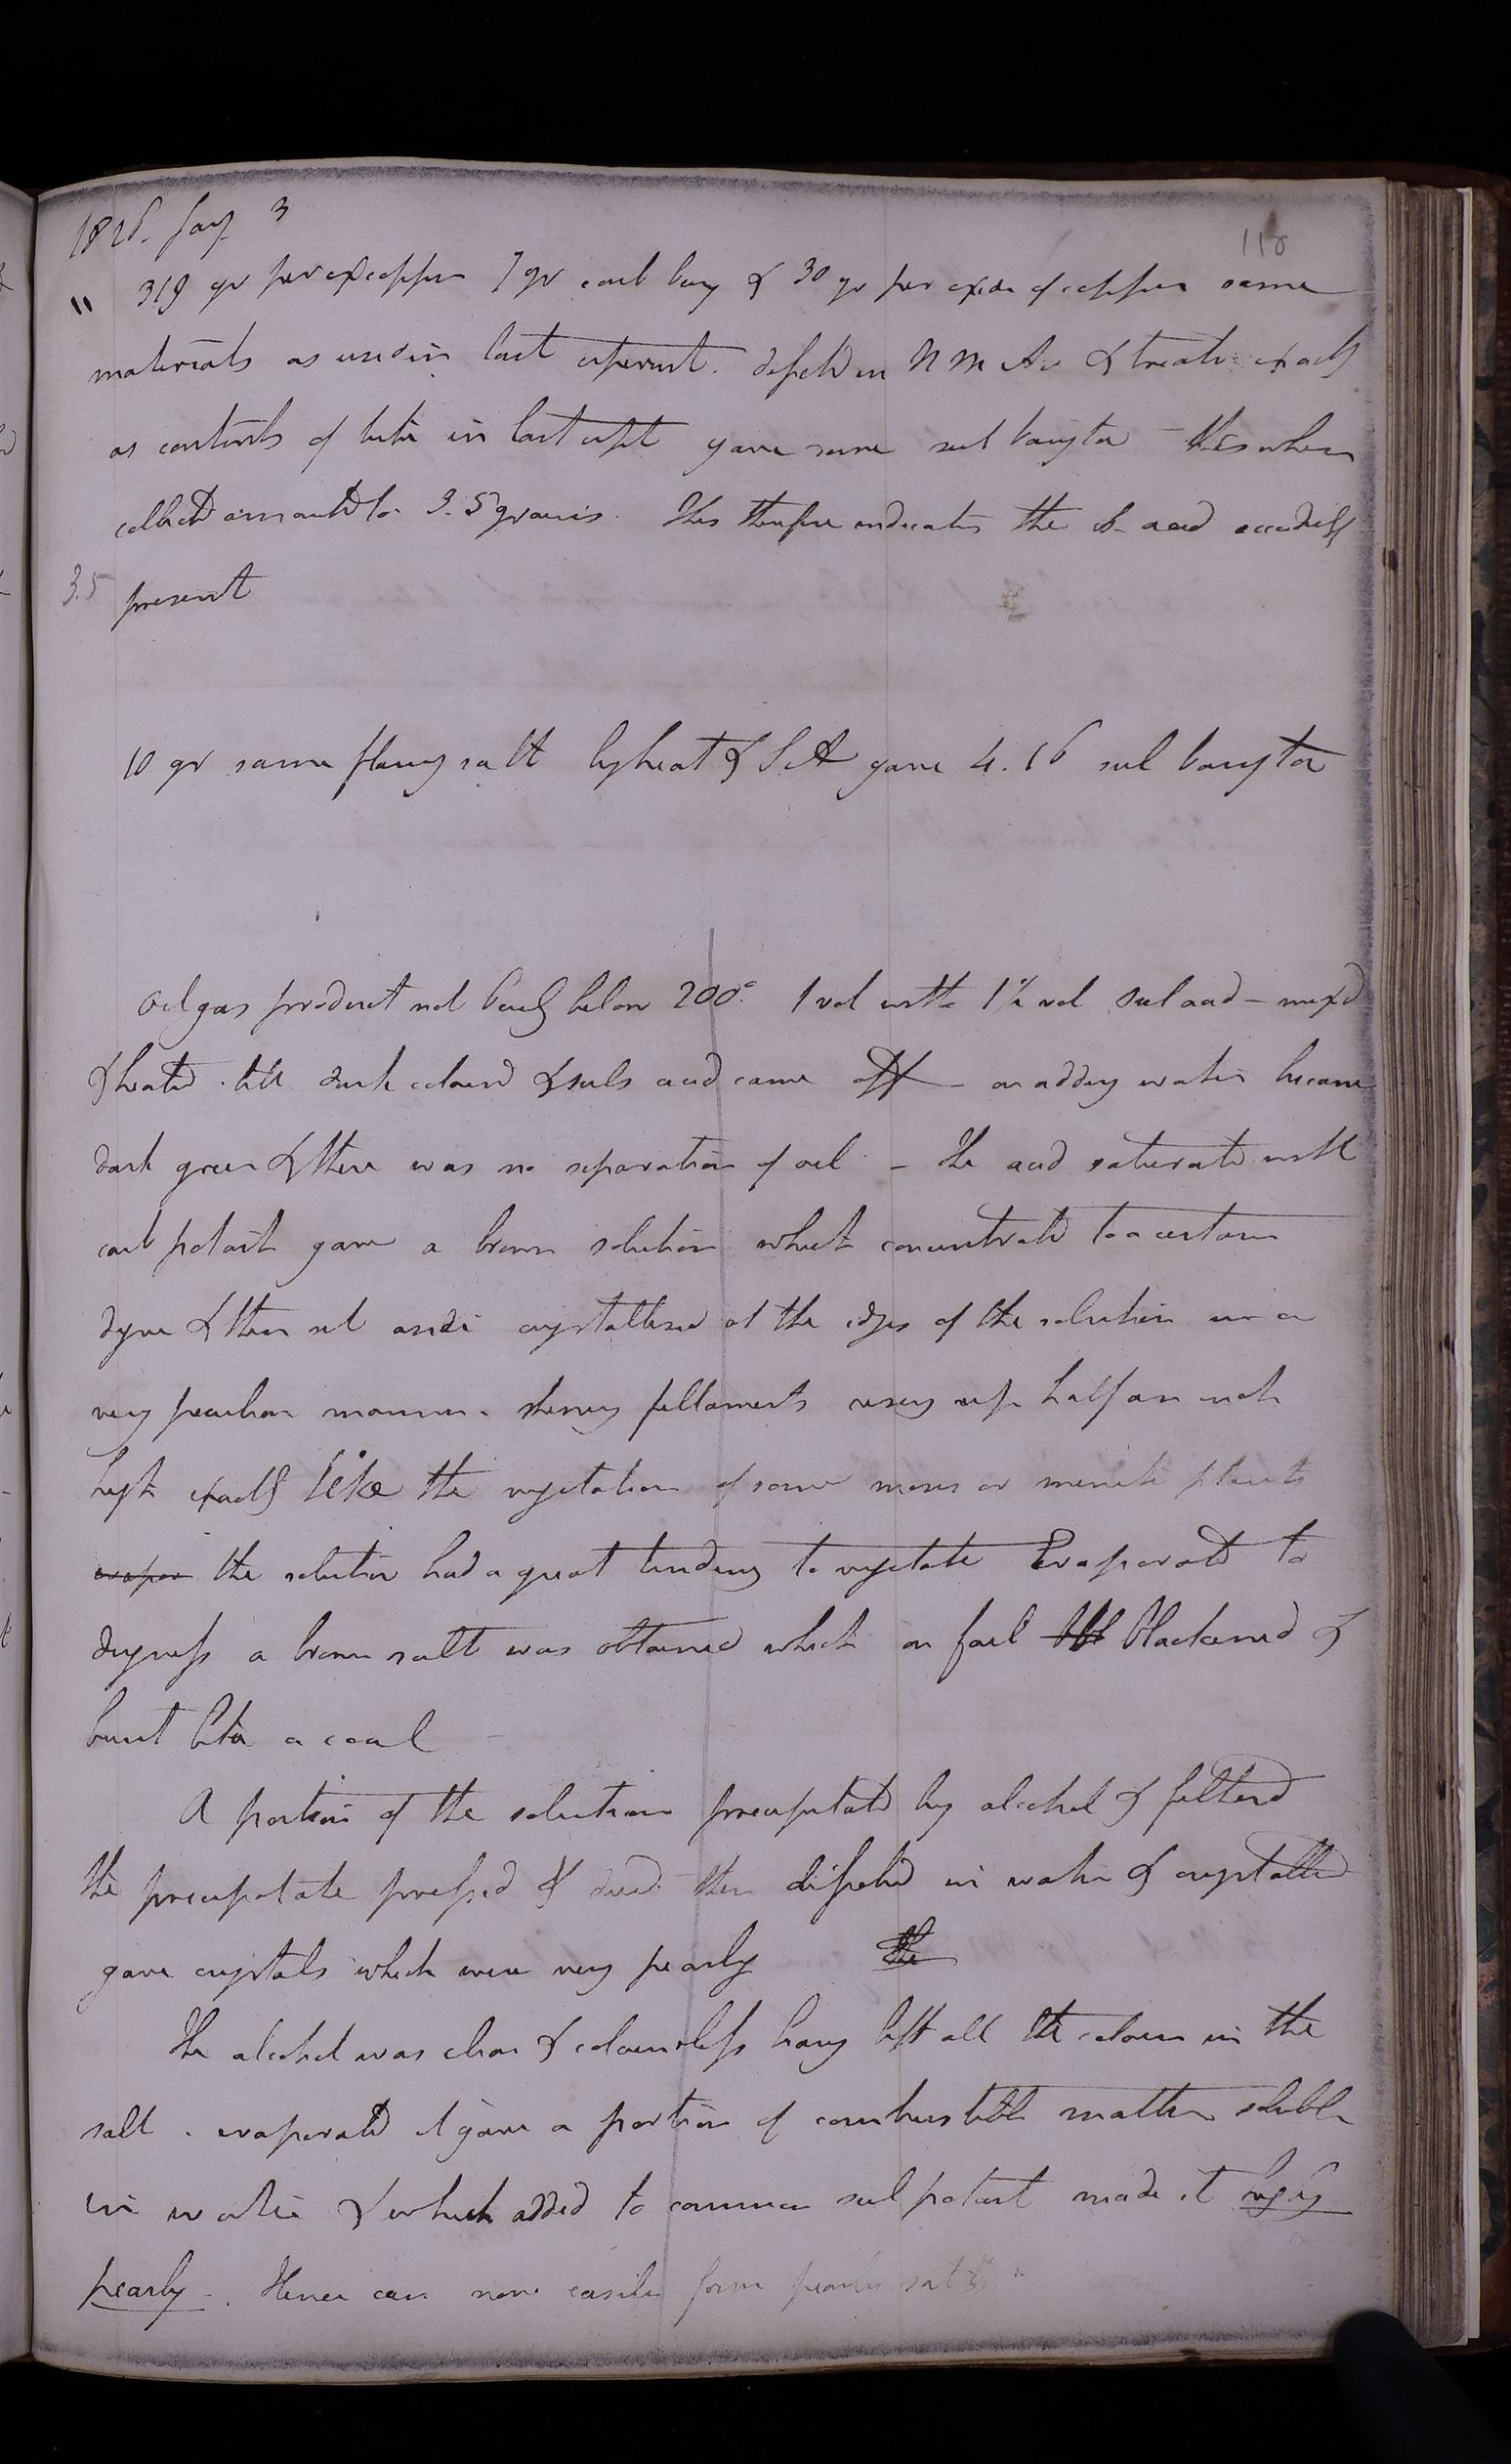 1826. Jany 3
118
" 319 gr per ox copper 7 gr carb bary & 30 gr per oxide of copper same
materials as used in last experiment. dissolvd in N M A & treated exactly
as contents of tube in last expt gave some sul baryta - this when
collected amounted to 3.5 grains. This therefore indicates the S- acid accidently
3.5 present
10 gr same flamy salt by heat & S A gave 4.16 sul baryta
Oil gas product not boilg below 200° 1 vol with 1½ vol sul acid - mixd
& heated till dark colourd & suls acid came off - on addng water became
dark green & there was no separation of oil - The acid saturated with
carb potash gave a brown solution which concentrated to a certain
degree & then set aside crystallised at the edges of the solution in a
very peculiar manner. shining fillaments rising up half an inch
high exactly like the vegetation of some moss or minute plants
evapor the solution had a great tendency to vegetate Evaporated to
dryness a brown salt was obtained which on foil blackened &
burnt like a coal
A portion of the solution precipitated by alcohol & filterd
the precipitate pressed & dried then dissolvd in water & crystallised
gave crystals which were very pearly the
The alcohol was clear & colourless havng left all the colour in the
salt. evaporated it gave a portion of combustible matter soluble
in water & which added to common sul potash made it highly
pearly. Hence can now easily form pearly salts